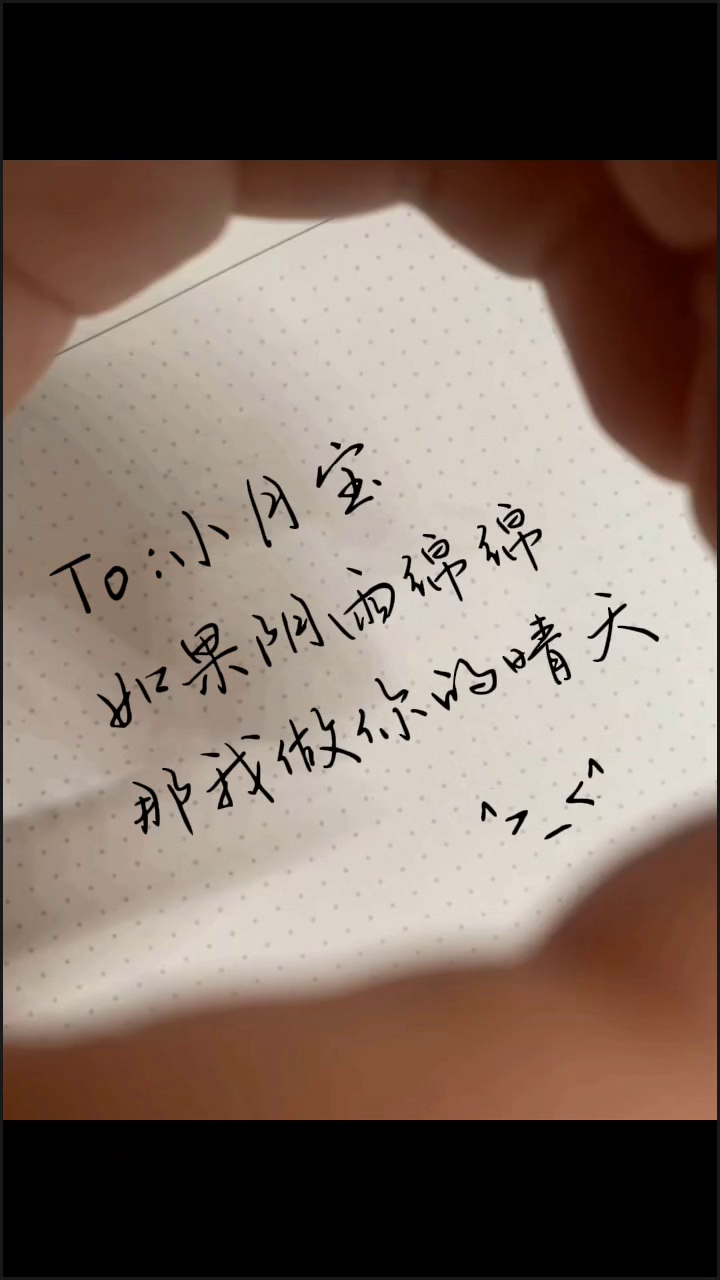 To:小月宝
如果阴雨绵绵
那我做你的晴天
^>_<^